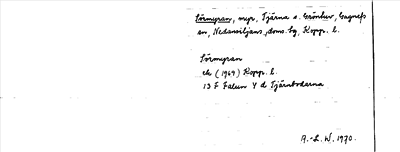 Sörmyran, myr, Tjärna s. Grönbur, Gagnefs
sn, Nedansiljans, doms. bg, Kopp. l.
Sörmyran
ek (1969) Kopp. l.
13 F Falun 4 d Tjärnbodarna
A.-L. W. 1970.